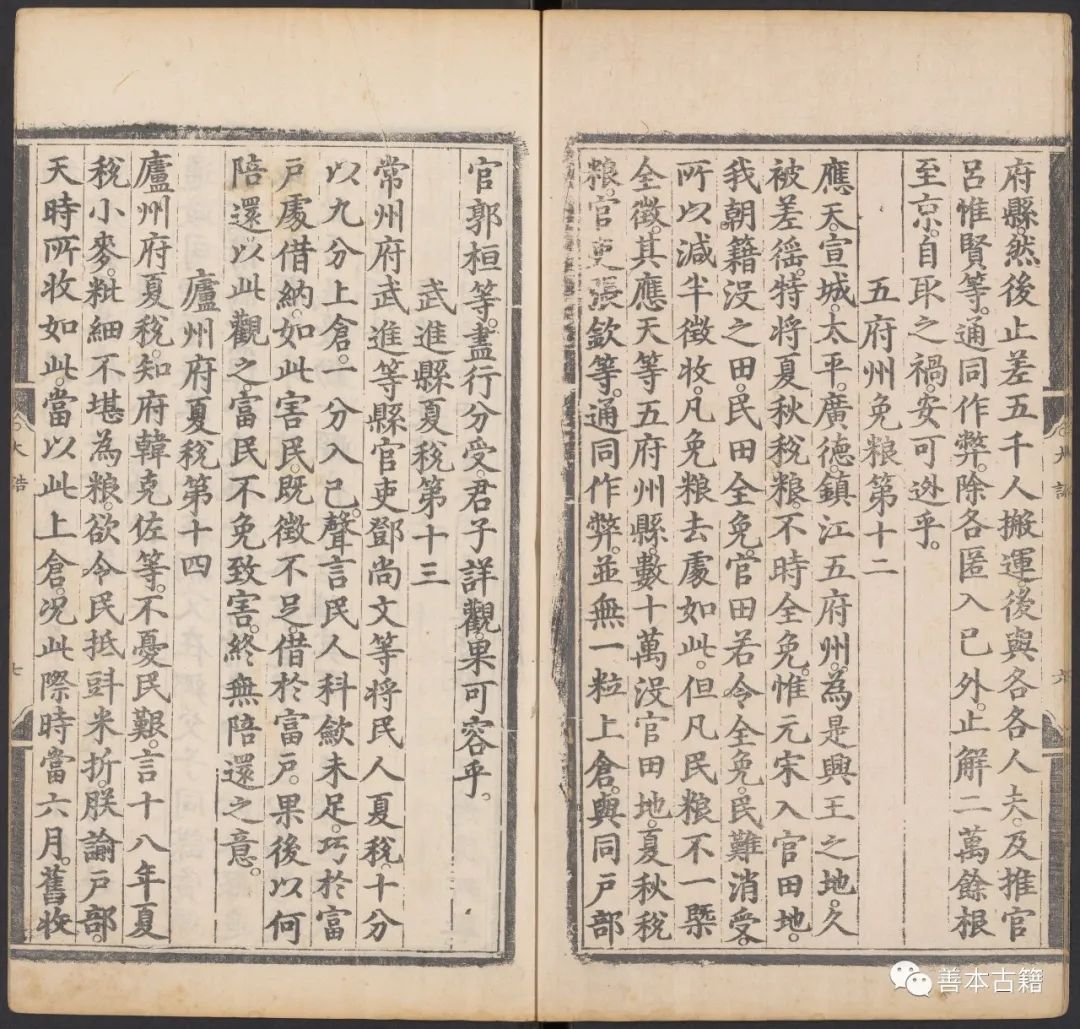 府縣然後止差五千人搬運後與各各人夫及推官
呂惟賢等通同作弊除各匿入己外止解二萬餘根
至京自取之禍安可逃乎
五府州免粮第十二
應天宣城太平廣德鎮江五府州為是興王之地久
被差徭特将夏秋稅粮不時全免惟元宋入官田地
我朝籍没之田民田全免官田若令全免民難消受
所以減半徵收凡免粮去處如此但凡民粮不一槩
全徵其應天等五府州縣數十萬没官田地夏秋稅
粮官吏張欽等通同作弊並無一粒上倉與同戸部
官郭桓等盡行分受君子詳觀果可容乎
武進縣夏稅第十三
常州府武進等縣官吏鄧尚文等将民人夏稅十分
以九分上倉一分入己聲言民人科歛未足巧於富
戸處借納如此害民既徵不足借於富戸果後以何
陪還以此觀之富民不免致害終無陪還之意
廬州府夏稅第十四
廬州府夏稅知府韓克佐等不憂民艱言十八年夏
稅小麥粃細不堪為粮欲令民抵㪷米折朕諭戸部
天時所收如此當以此上倉况此際時當六月舊收
大誥
七
六
善本古籍